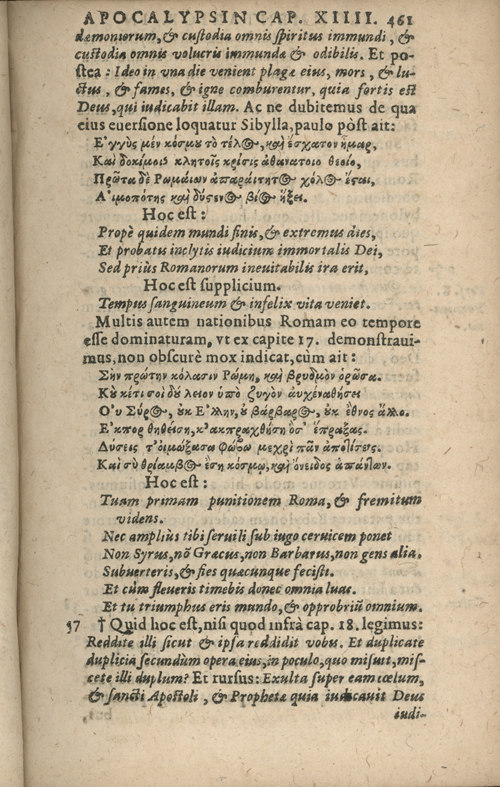 APOCALYPSIN CAP. XIIII. 461
dæmoniorum, & custodia omnis spiritus immundi, &
custodia omnis volucris immundæ & odibilis. Et po-
stea : Ideo in vna die venient plagæ eius, mors, & lu-
ctus, & fames, & igne comburentur, quia fortis est
Deus, qui iudicabit illam. Ac ne dubitemus de qua
eius euersione loquatur Sibylla, paulo pòst ait:
Ε'γγὺς μέν κόσμου τὸ τέλος, καὶ ἔσχατον ἦμαρ,
Καὶ δοκίμοις κλητοῖς κρίσις ἀθανατοιο θεοῖο,
Πρῶτα δὲ Ρωμαίων ἀπαραίτητος χόλος ἔσαι,
Α'ιμοπότης καὶ δύστενος βίος ἥξει.
Hoc est :
Propè quidem mundi finis, & extremus dies,
Et probatus inclytis iudicium immortalis Dei,
Sed priùs Romanorum ineuitabilis ira erit,
Hoc est supplicium.
Tempus sanguineum & infelix vita veniet.
Multis autem nationibus Romam eo tempore
esse dominaturam, vt ex capite 17. demonstraui-
mus, non obscurè mox indicat, cùm ait :
Σὴν πρώτην κόλασιν Ρώμη, καὶ βρυδμὸν ὁρῶσα.
Κοὐκέτι σοὶ δούλειον ὑπὸ ζυγὸν αὐχέναθήσει
Ο'υ Σύρος, οὐκ Ε'λλην, οὐ βάρβαρος, οὐκ ἔθνος ἄλλο.
Ε'κπορθηθείση, κ'ακπραχθήση ὅσ' ἔπραξας.
Δύσεις τ' οἰμώξασα φώβῳ μεχρὶ πᾶν ἀπολίτσεις.
Καὶ σὺ θρίαμβος ἔση κόσμῳ, καὶ ὄνειδος ἁπάντων.
Hoc est :
Tuam primam punitionem Roma, & fremitum
videns.
Nec ampliùs tibi seruili sub iugo ceruicem ponet
Non Syrus, nõ Græcus, non Barbarus, non gens alia,
Subuerteris, & fies quæcunque fecisti.
Et cùm fleueris timebis donec omnia luas.
Et tu triumphus eris mundo, & opprobriũ omnium.
37 † Quid hoc est, nisi quod infrà cap. 18. legimus:
Reddite illi sicut & ipsa reddidit vobis. Et duplicate
duplicia secundùm opera eius, in poculo, quo misuit, mis-
cete illi duplum? Et rursus : Exulta super eam cœlum,
& sancti Apostoli, & Prophetæ quia iudicauit Deus
iudi-